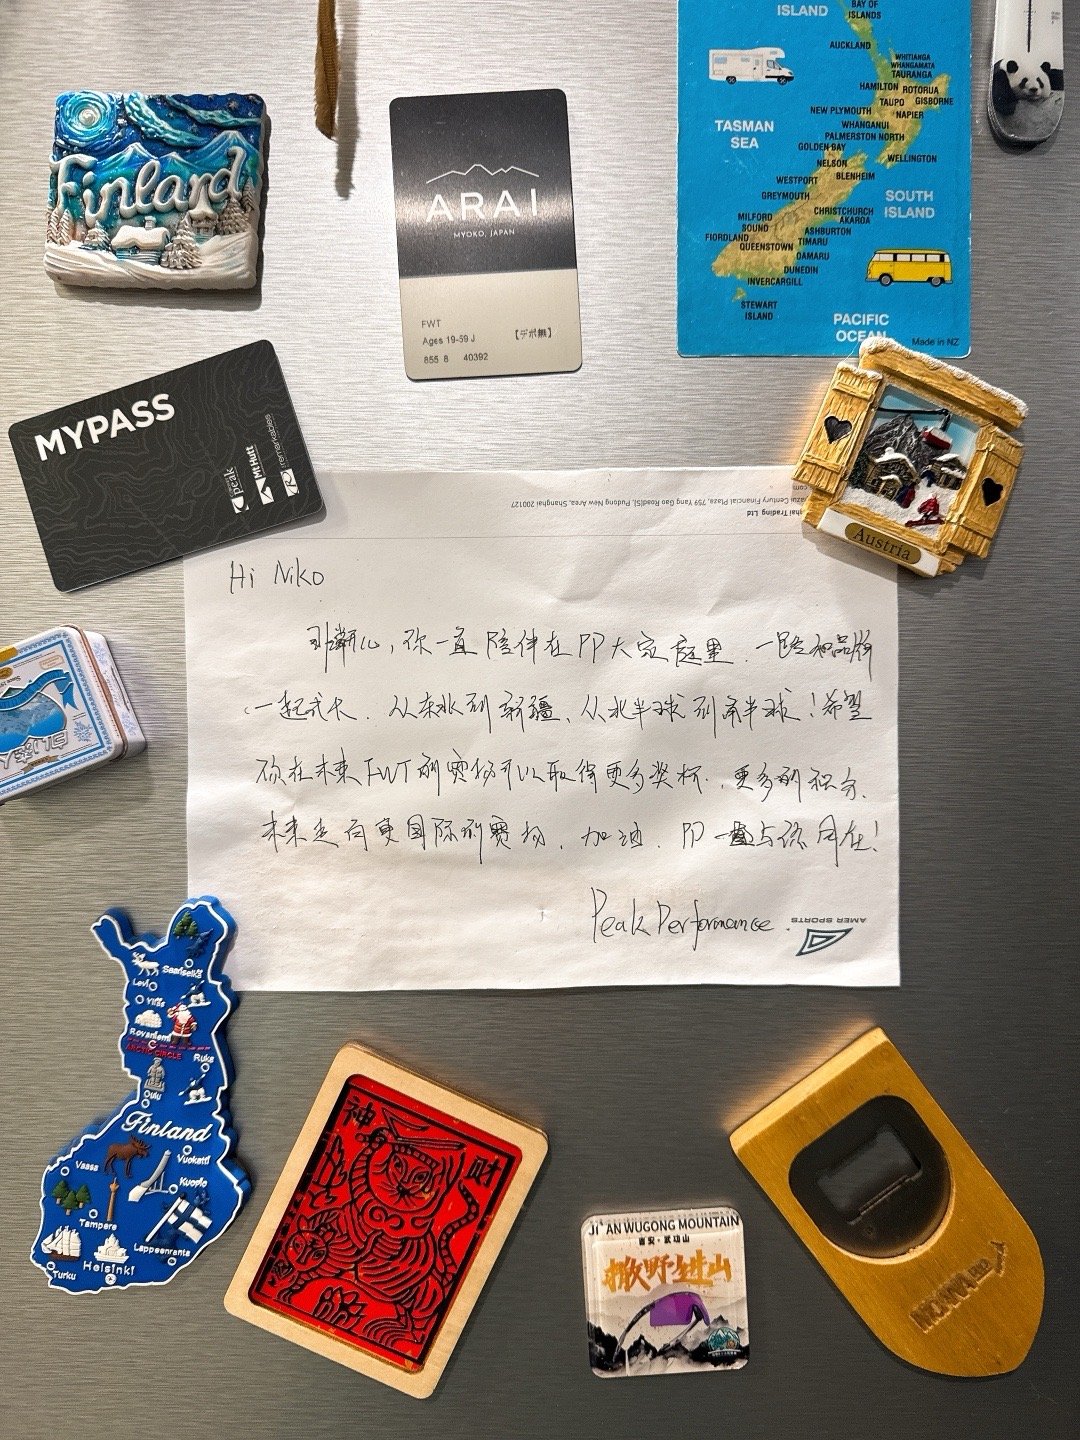 ISLAND
BAY OF
ISLANDS
AUCKLAND
WHITIANGA
WHANGAMATA
TAURANGA
HAMILTON
ROTORUA
TAUPO
GISBORNE
NEW PLYMOUTH
NAPIER
WHANGANUI
PALMERSTON NORTH
TASMAN
SEA
GOLDEN BAY
NELSON
WELLINGTON
WESTPORT
BLENHEIM
GREYMOUTH
SOUTH
ISLAND
CHRISTCHURCH
AKAROA
MILFORD
SOUND
ASHBURTON
FIORDLAND
TIMARU
QUEENSTOWN
OAMARU
DUNEDIN
INVERCARGILL
STEWART
ISLAND
PACIFIC
OCEAN
Made in NZ
Finland
ARAI
MYOKO, JAPAN
FWT
Ages 19-59 J
【デポ無】
855 8 40392
MYPASS
peak
Mt Hutt
remarkables
Austria
hai Trading Ltd
azui Century Financial Plaza, 759 Yang Gao Road(S), Pudong New Area, Shanghai 200127
Hi Niko
非常开心，你一直陪伴在PP大家庭里．一路和品牌
一起成长．从东北到新疆、从北半球到南半球！希望
你在未来FWT的赛场可以取得更多奖杯．更多的积分．
未来走向更国际的赛场．加油．PP一直与你同在！
Peak Performance.
AMER SPORTS
Saariselkä
Levi
Ylläs
Rovaniemi
ARCTIC CIRCLE
Ruka
Oulu
Finland
Vaasa
Vuokatti
Kuopio
Tampere
Lappeenranta
Helsinki
Turku
神
财
JI'AN WUGONG MOUNTAIN
吉安·武功山
撒野进山